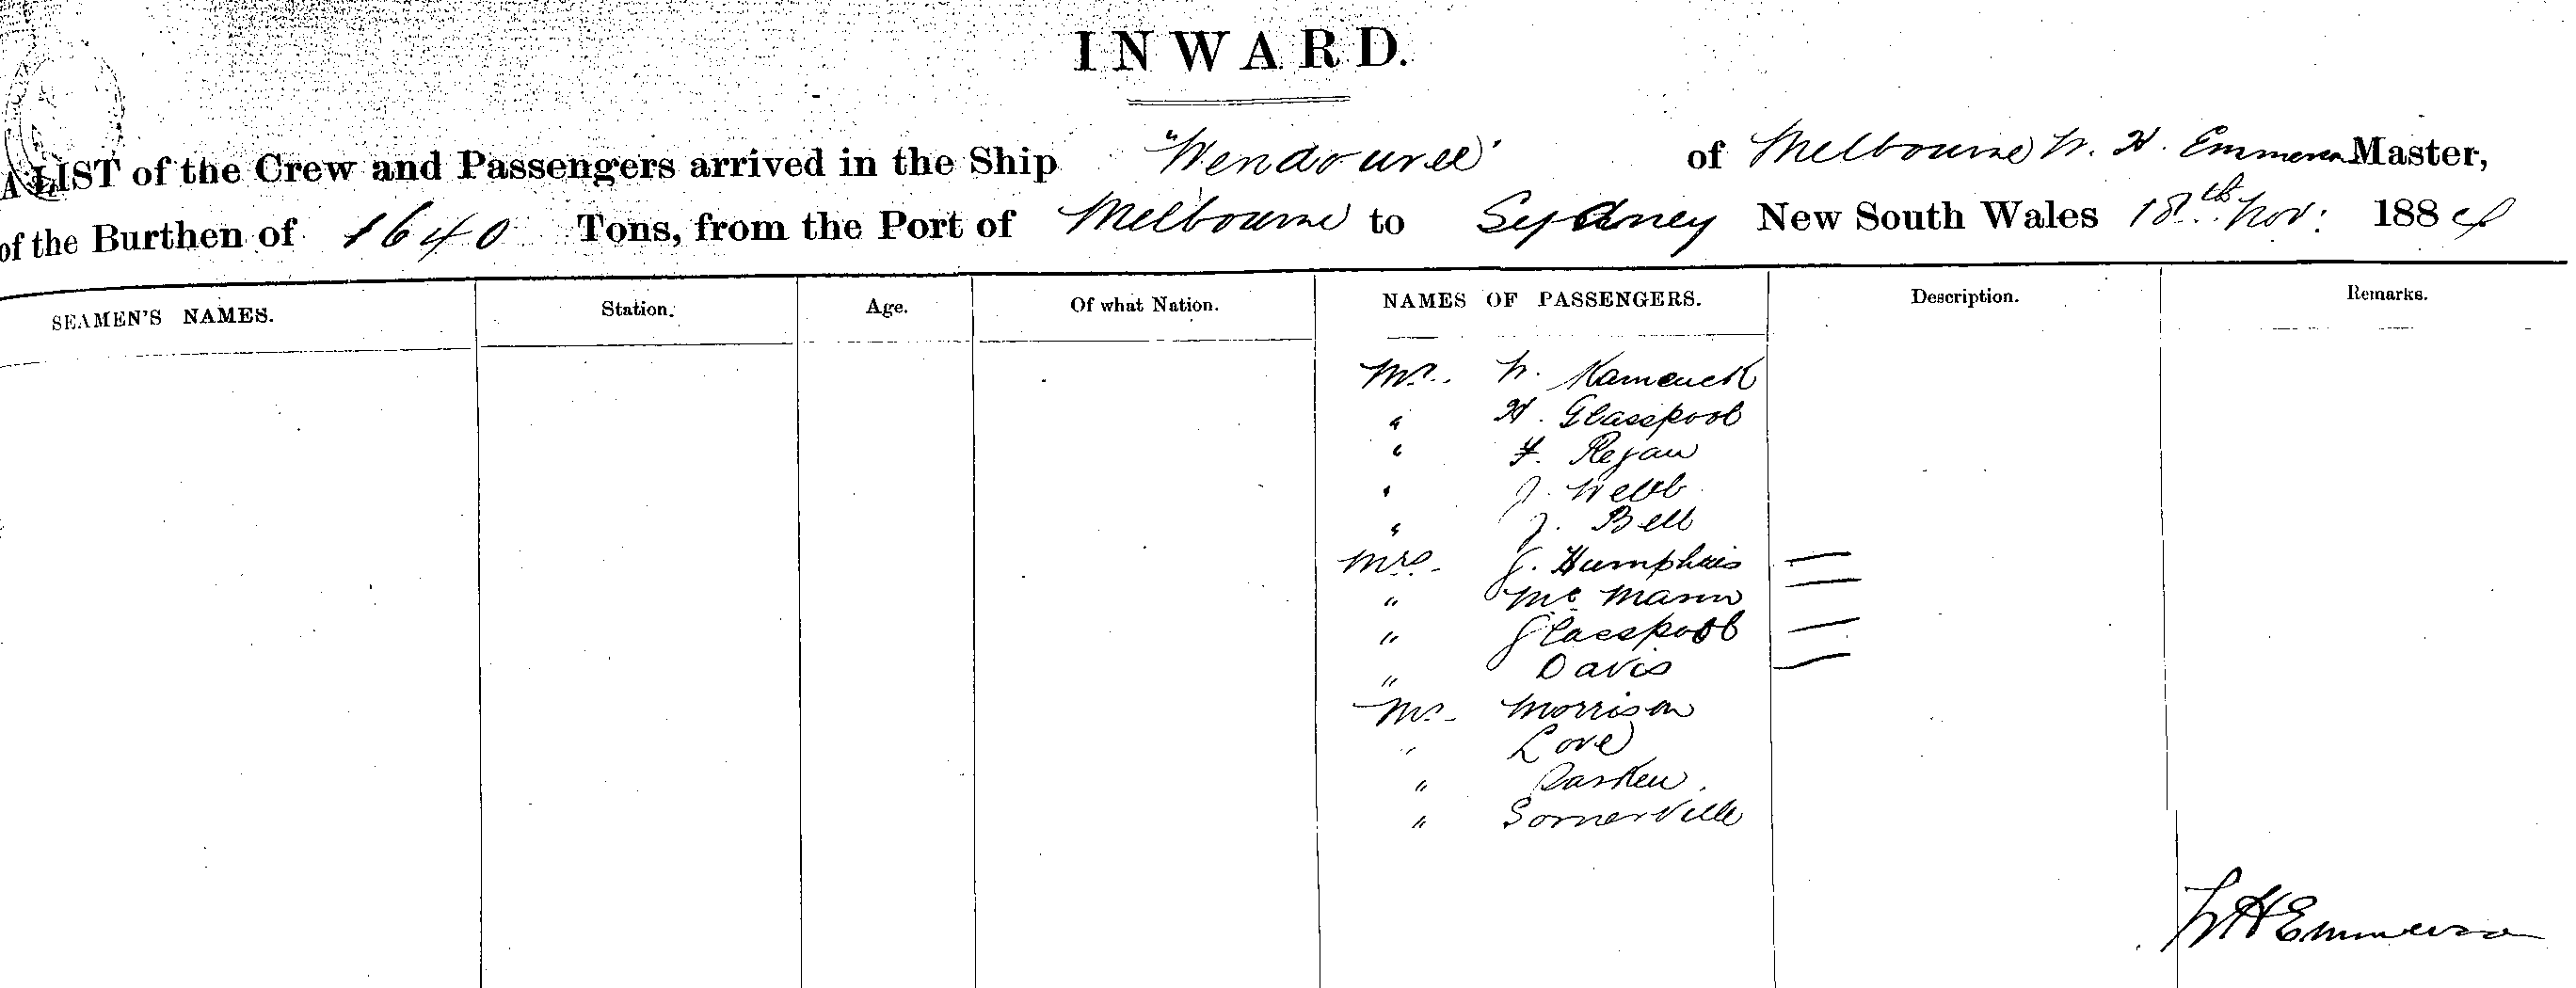 INWARD.
A LIST of the Crew and Passengers arrived in the Ship "Wendouree" of Melbourne W. H. Emmerson Master,
of the Burthen of 1640 Tons, from the Port of Melbourne to Sydney New South Wales 18th Nov: 1884
SEAMEN'S NAMES. Station. Age. Of what Nation. NAMES OF PASSENGERS. Description. Remarks.
Mr. W.
" H. Glasspool
" F. Regan
" J. Webb
" J. Bell
Mrs. J. Humphris —
" Mc Mann —
" Glasspool —
" Davis —
Mr. Morrison
" Love
"
" Somerville
W H Emmerson